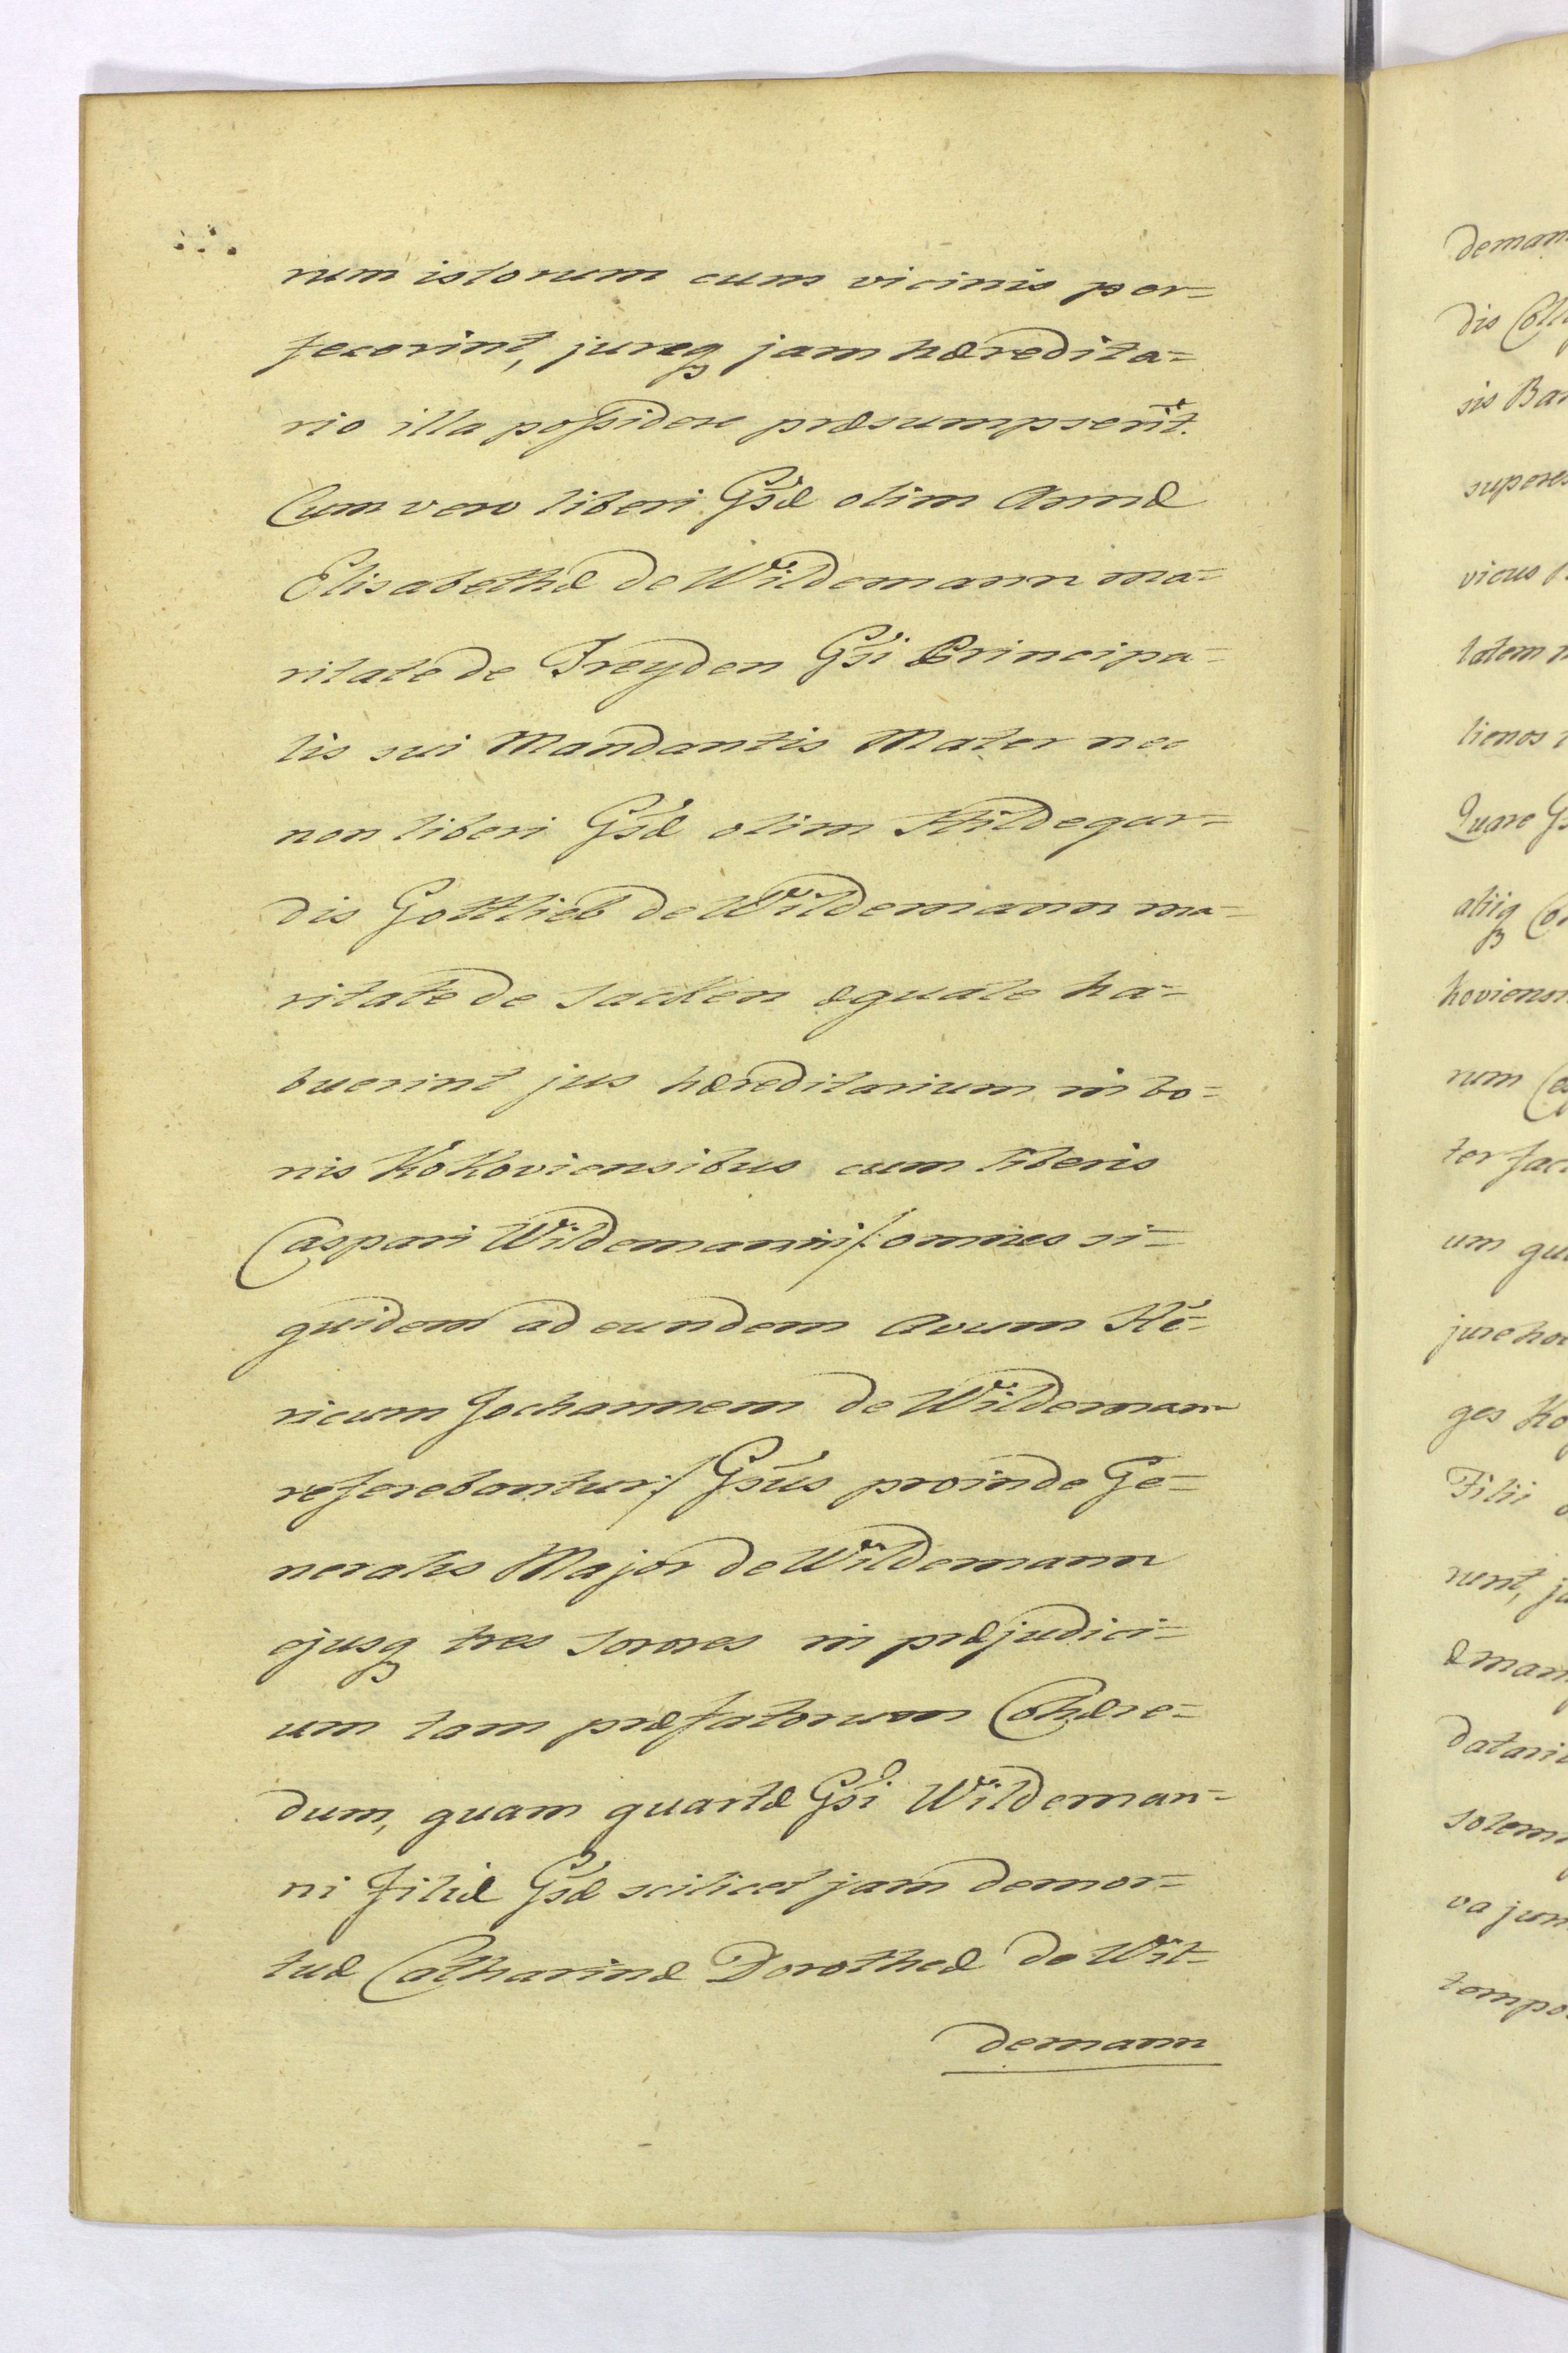 rum istorum cum vicinis per=
fecerint, jureq₃ jam hæredita=
rio illa poſsidere præsumpserit.
Cum vero liberi Gsæ olim Annæ
Elisabethæ de Wildemann ma=
ritatæ de Treyden Gsi Principa=
lis sui Mandantis Mater nec
non liberi Gsæ olim Hildegar=
dis Gottlieb de Wildemann ma=
ritatæ de Sacken æquale ha=
buerint jus hæreditarium in bo=
nis Kokoviensibus cum liberis
Caspari Wildemanni /: omnes si=
quidem ad eundem Avum He=
ricum Jochannem de Wildemann
referebantur :/ Gsus proinde Ge=
neralis Major de Wildemann
ejusq₃ tres Sorores in præjudici=
um tam præfatorum Cohære=
dum, quam quartæ Gsi Wildeman=
ni Filiæ Gsæ scilicet jam demor=
tuæ Catharinæ Dorotheæ de Wil=
demann
deman
dis
sis
superes
vicus
tatem
lienos
Quare
aliiq₃
koviens
rum
ter
um
jure
ges
Filii
runt,
datari
solem
va
tempo